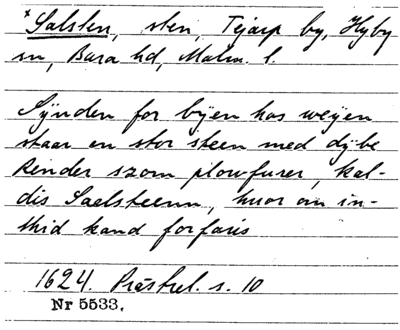 *Salsten, sten, Tejarp by, Hyby
sn, Bara hd, Malm. l.
Synden for byen hos weyen
staar en stor steen med dybe
Render szom plowfurer, kal-
dis Saelsteenn, huor om in-
thid kand forfaris
1624. Prästrel. s. 10
Nr 5533.